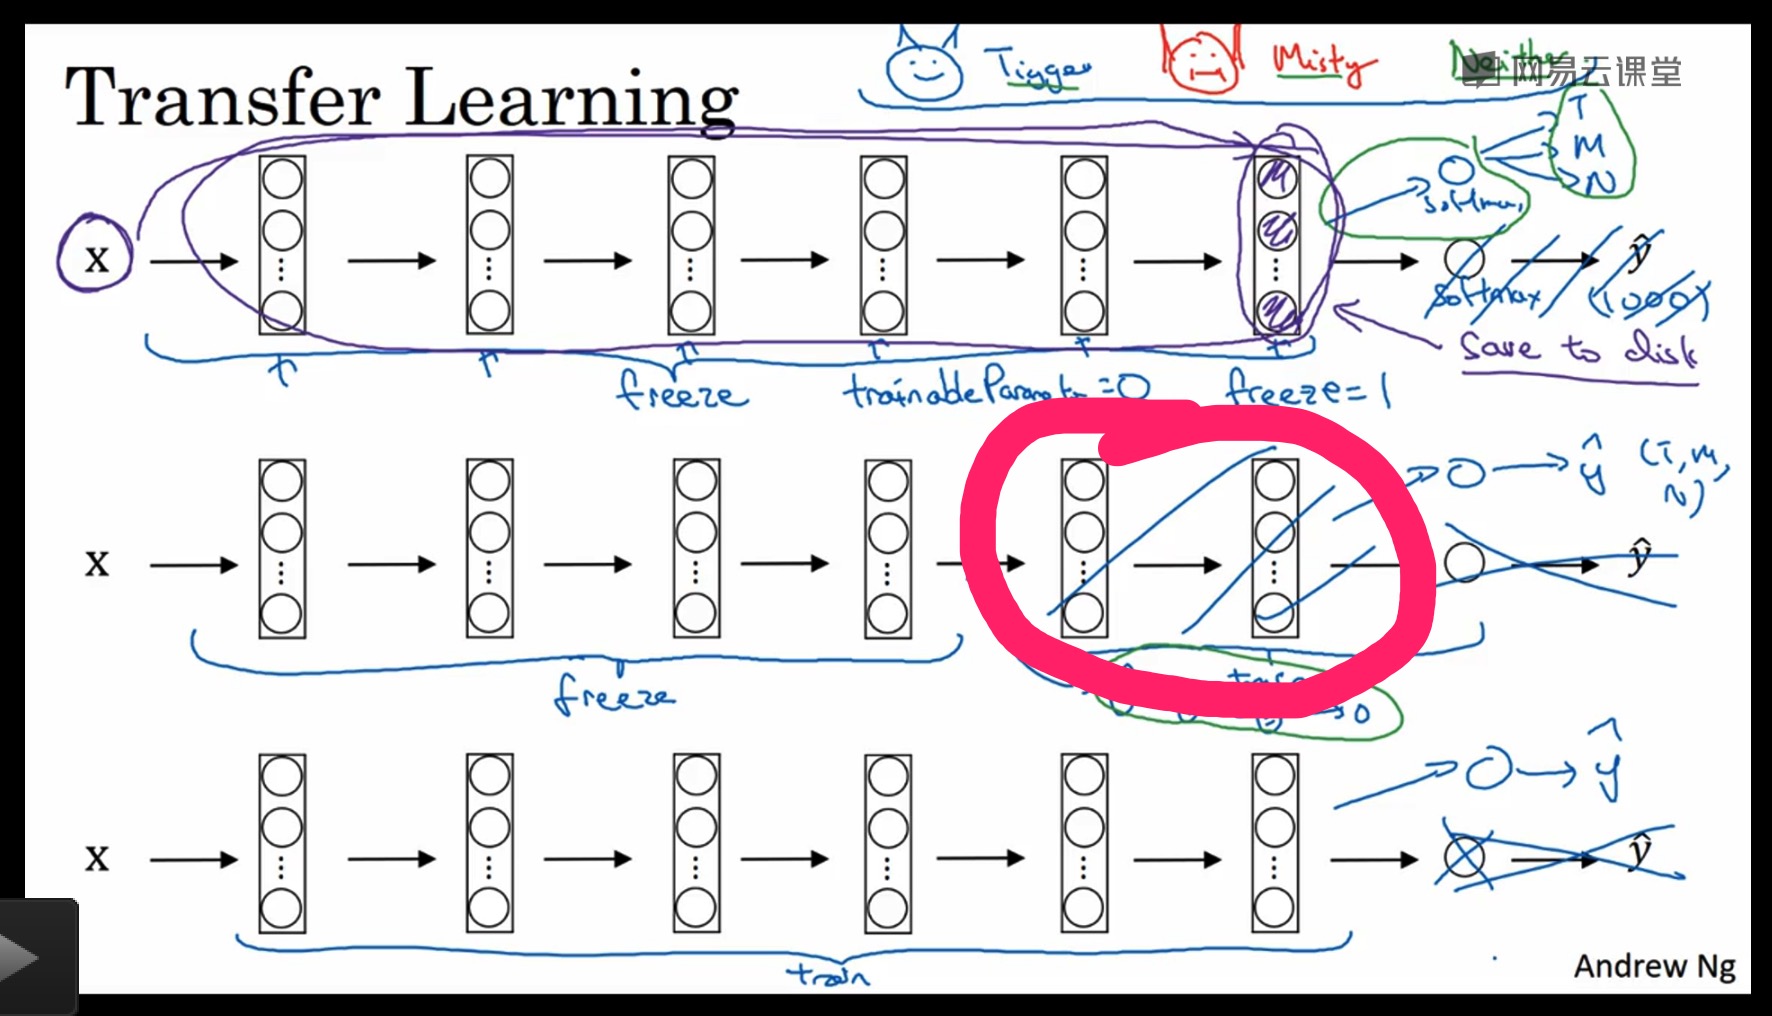 Transfer Learning
Tigger Misty Neither
网易云课堂
T
M
N
softmax
x
ŷ
softmax (1000)
Save to disk
freeze trainableParamet =0 freeze=1
ŷ (T, M,
N)
x
ŷ
freeze
ŷ
x
ŷ
train
Andrew Ng